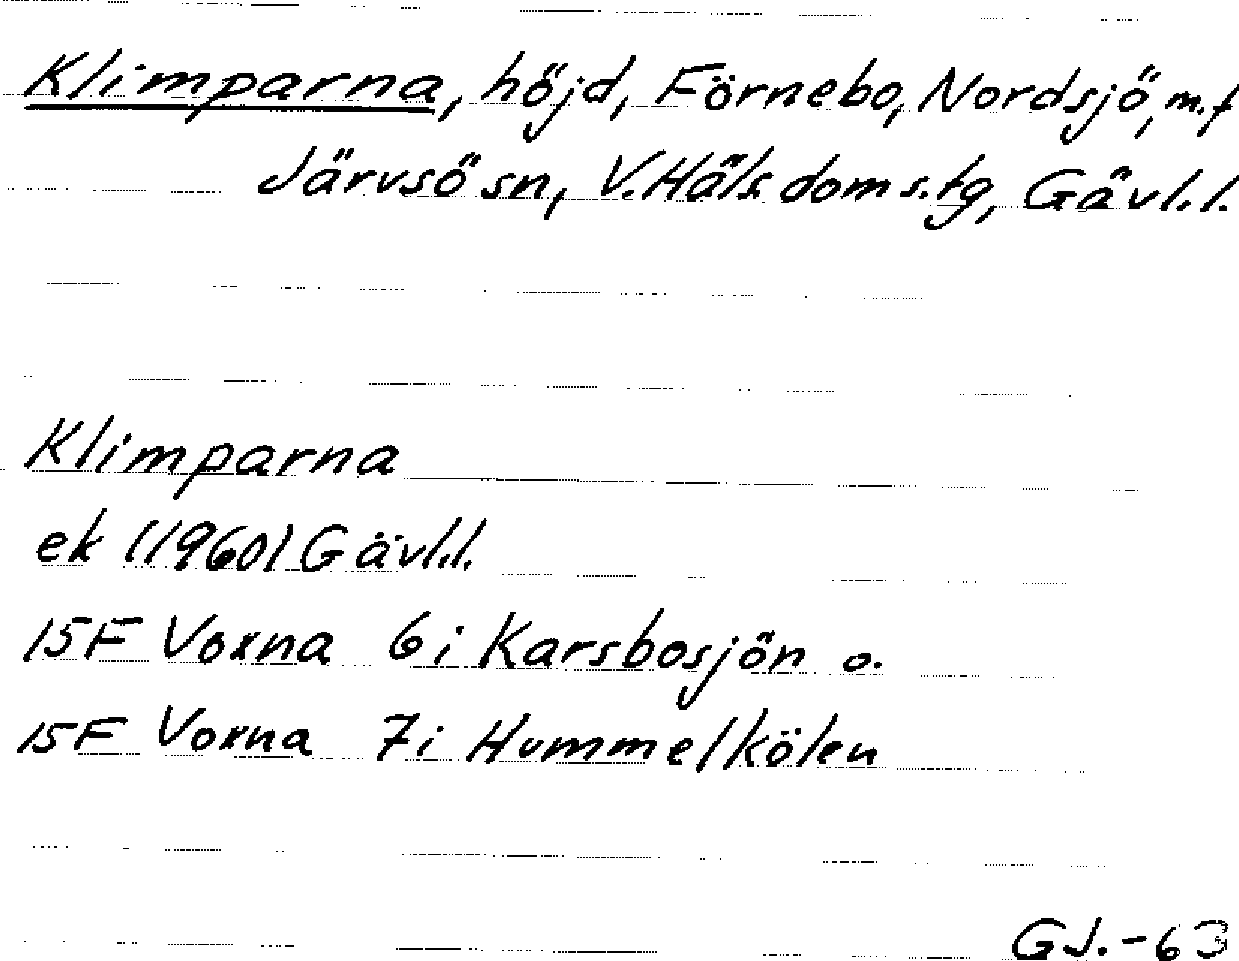 Klimparna, höjd, Förnebo, Nordsjö, m.f
Järvsö sn, V.Häls. doms.tg, Gävl.l.
Klimparna
ek (1960) Gävl.l.
15F Voxna 6i Karsbosjön o.
15F Voxna 7i Hummelkölen
GJ.-63